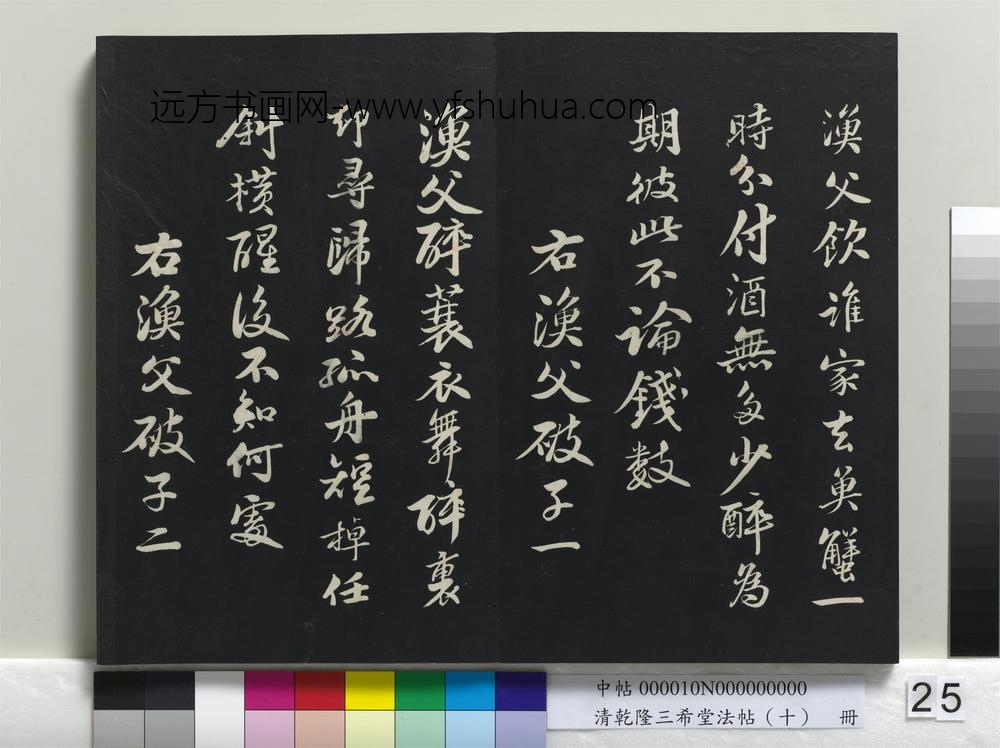 远方书画网-www.yfshuhua.com
漁父飲誰家去魚蟹一
時分付酒無多少醉為
期彼此不論錢數
右漁父破子一
漁父醉蓑衣舞醉裏
却尋歸路孤舟短棹任
斜橫醒後不知何處
右漁父破子二
中帖 000010N000000000
清乾隆三希堂法帖（十） 冊
25